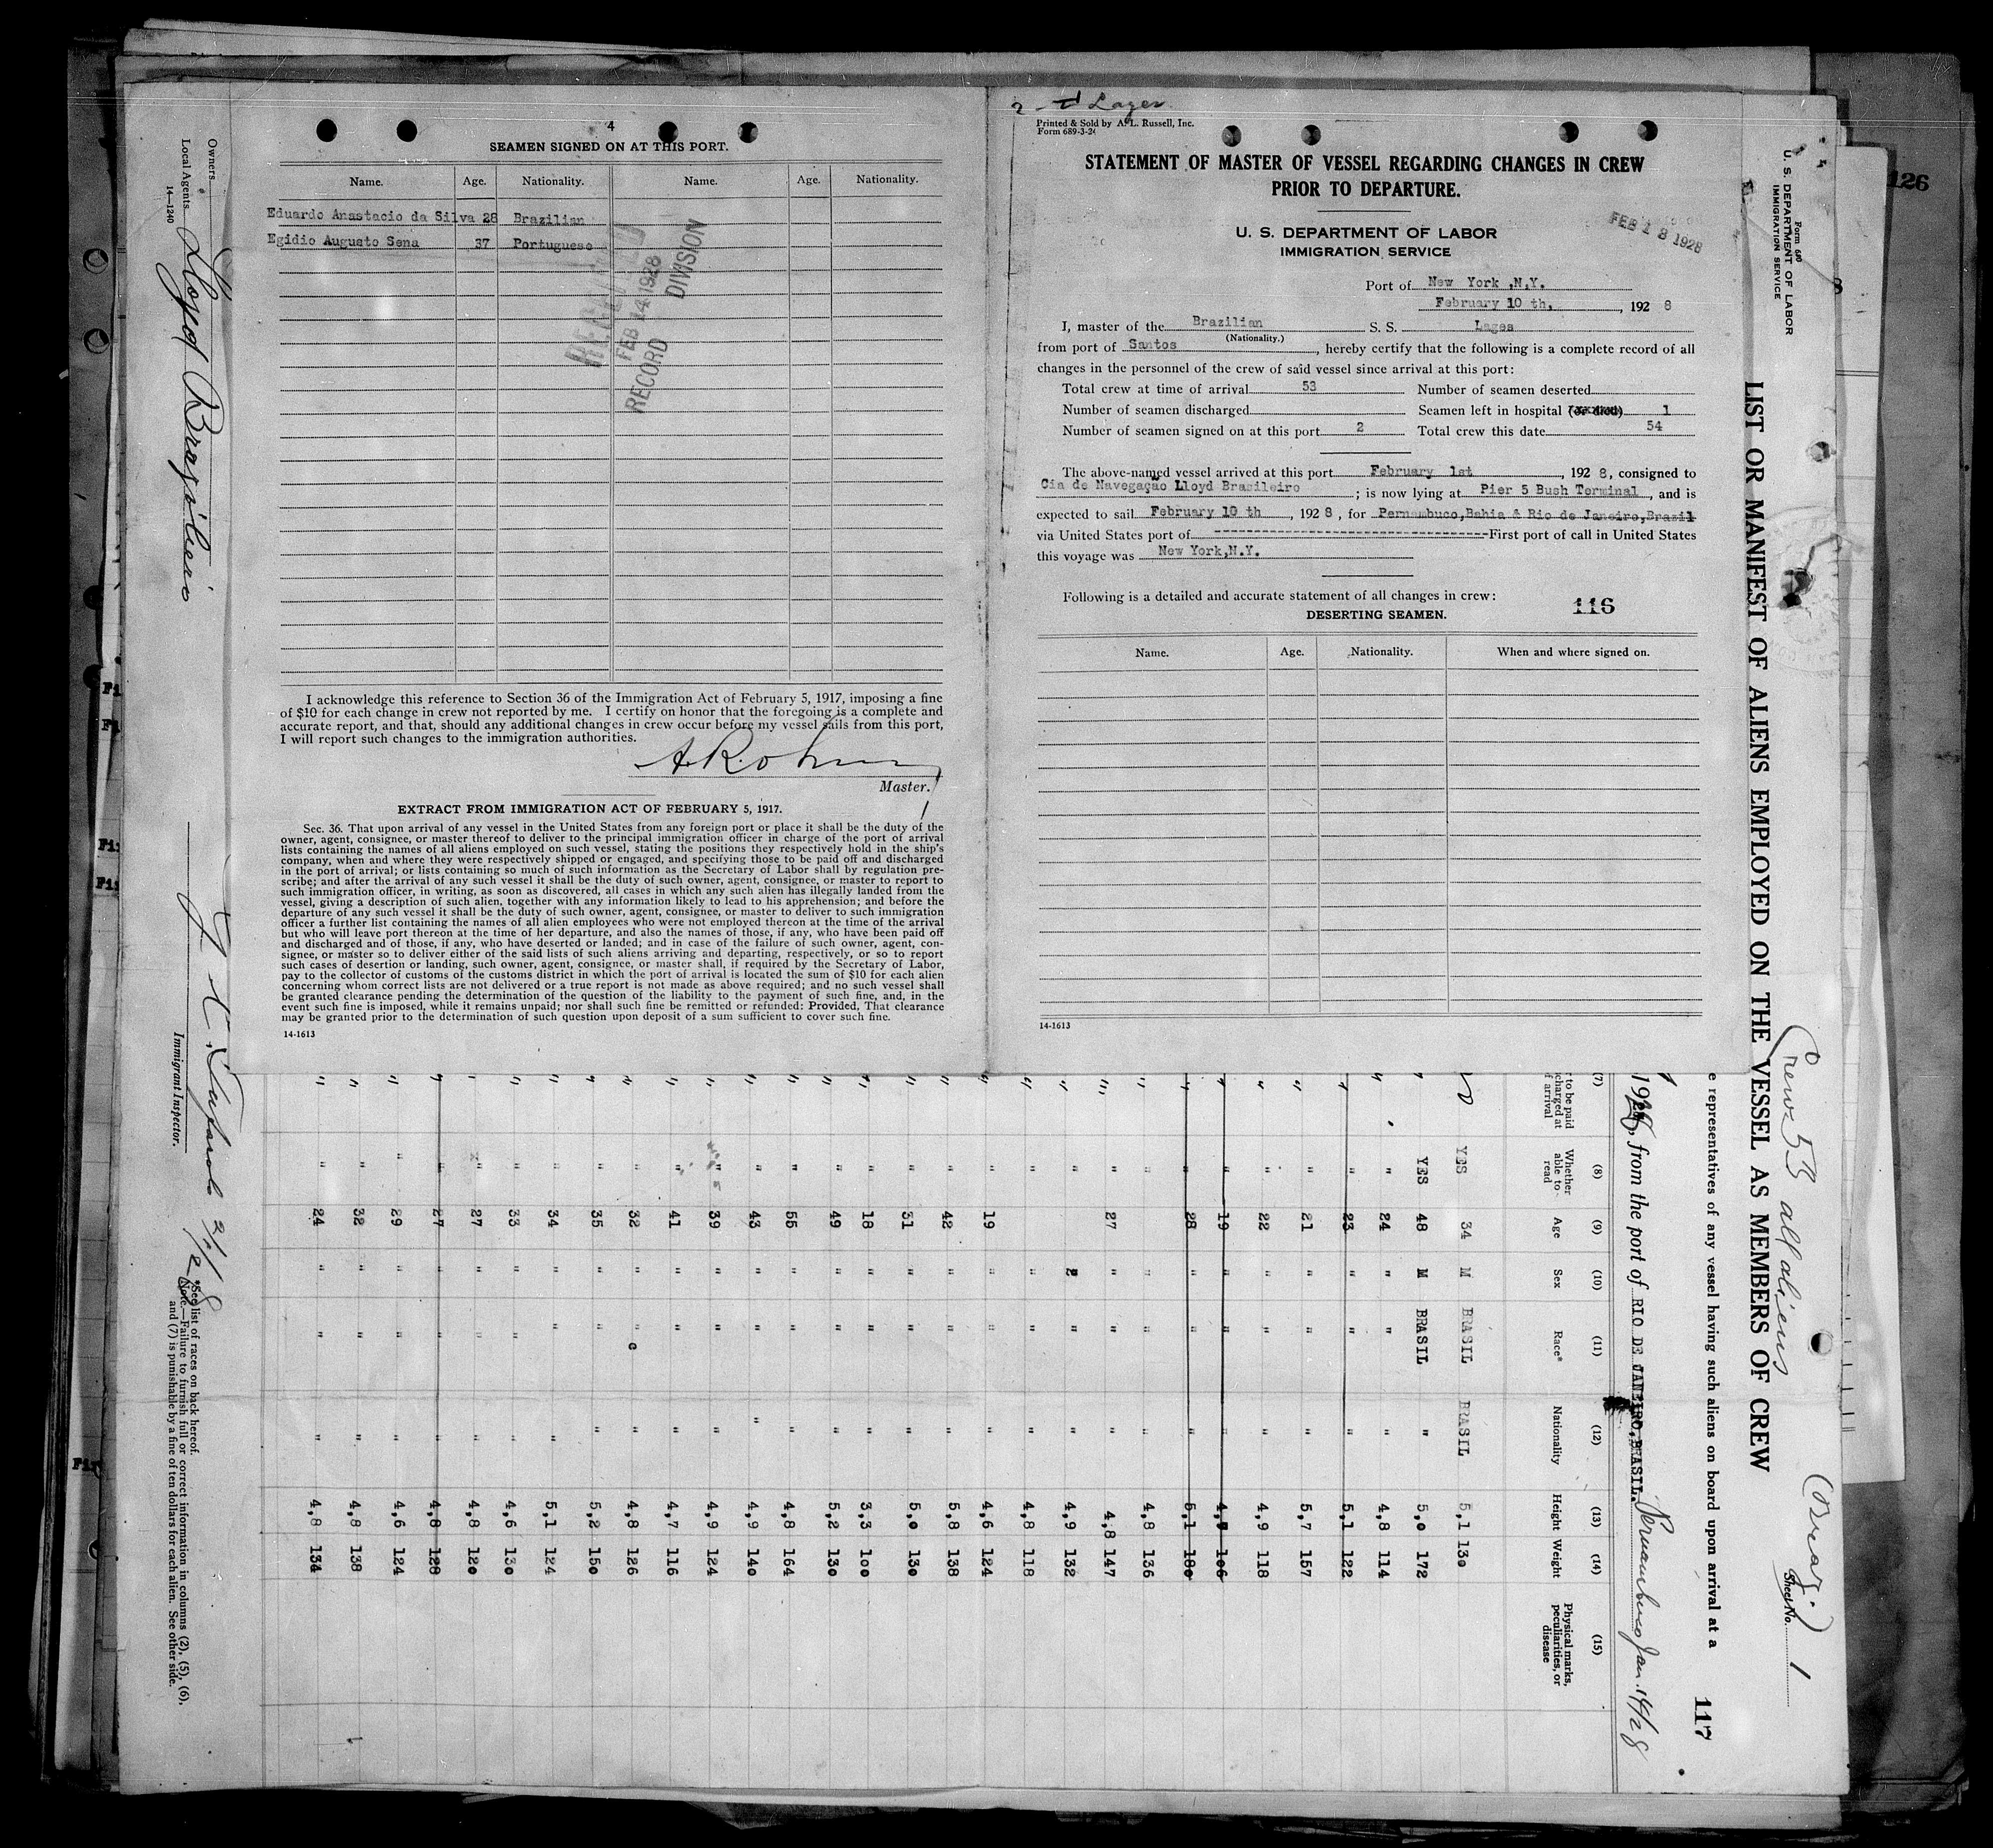 4
SEAMEN SIGNED ON AT THIS PORT.
Name. Age. Nationality. Name. Age. Nationality.
Eduardo Anastacio da Silva 28 Brazilian
Egidio Augusto Sena 37 Portuguese
RECEIVED
FEB 14 1928
RECORD DIVISION
I acknowledge this reference to Section 36 of the Immigration Act of February 5, 1917, imposing a fine
of $10 for each change in crew not reported by me. I certify on honor that the foregoing is a complete and
accurate report, and that, should any additional changes in crew occur before my vessel sails from this port,
I will report such changes to the immigration authorities.
Master.
EXTRACT FROM IMMIGRATION ACT OF FEBRUARY 5, 1917.
Sec. 36. That upon arrival of any vessel in the United States from any foreign port or place it shall be the duty of the
owner, agent, consignee, or master thereof to deliver to the principal immigration officer in charge of the port of arrival
lists containing the names of all aliens employed on such vessel, stating the positions they respectively hold in the ship's
company, when and where they were respectively shipped or engaged, and specifying those to be paid off and discharged
in the port of arrival; or lists containing so much of such information as the Secretary of Labor shall by regulation pre-
scribe; and after the arrival of any such vessel it shall be the duty of such owner, agent, consignee, or master to report to
such immigration officer, in writing, as soon as discovered, all cases in which any such alien has illegally landed from the
vessel, giving a description of such alien, together with any information likely to lead to his apprehension; and before the
departure of any such vessel it shall be the duty of such owner, agent, consignee, or master to deliver to such immigration
officer a further list containing the names of all alien employees who were not employed thereon at the time of the arrival
but who will leave port thereon at the time of her departure, and also the names of those, if any, who have been paid off
and discharged and of those, if any, who have deserted or landed; and in case of the failure of such owner, agent, con-
signee, or master so to deliver either of the said lists of such aliens arriving and departing, respectively, or so to report
such cases of desertion or landing, such owner, agent, consignee, or master shall, if required by the Secretary of Labor,
pay to the collector of customs of the customs district in which the port of arrival is located the sum of $10 for each alien
concerning whom correct lists are not delivered or a true report is not made as above required; and no such vessel shall
be granted clearance pending the determination of the question of the liability to the payment of such fine, and, in the
event such fine is imposed, while it remains unpaid; nor shall such fine be remitted or refunded: Provided, That clearance
may be granted prior to the determination of such question upon deposit of a sum sufficient to cover such fine.
14-1613
Lages
Printed & Sold by A. L. Russell, Inc.
Form 689-3-26
STATEMENT OF MASTER OF VESSEL REGARDING CHANGES IN CREW
PRIOR TO DEPARTURE.
U. S. DEPARTMENT OF LABOR
IMMIGRATION SERVICE
FEB 18 1928
Port of New York ,N.Y.
February 10 th, , 192 8
I, master of the Brazilian S. S. Lages
(Nationality.)
from port of Santos , hereby certify that the following is a complete record of all
changes in the personnel of the crew of said vessel since arrival at this port:
Total crew at time of arrival 53 Number of seamen deserted
Number of seamen discharged Seamen left in hospital (or died) 1
Number of seamen signed on at this port 2 Total crew this date 54
The above-named vessel arrived at this port February 1st , 192 8, consigned to
Cia de Navegação Lloyd Brasileiro ; is now lying at Pier 5 Bush Terminal , and is
expected to sail February 10 th , 192 8 , for Pernambuco,Bahia & Rio de Janeiro,Brazil
via United States port of -------- First port of call in United States
this voyage was New York,N.Y.
Following is a detailed and accurate statement of all changes in crew:
116
DESERTING SEAMEN.
Name. Age. Nationality. When and where signed on.
14-1613
126
Form 680
U. S. DEPARTMENT OF LABOR
IMMIGRATION SERVICE
LIST OR MANIFEST OF ALIENS EMPLOYED ON THE VESSEL AS MEMBERS OF CREW
Crew 53 all aliens
(Braz.)
Sheet No. 1
117
e representatives of any vessel having such aliens on board upon arrival at a
1928, from the port of RIO DE JANEIRO,BRASIL. Pernambuco Jan. 14/28
(7) (8) (9) (10) (11) (12) (13) (14) (15)
to be paid
charged at
f arrival
Whether
able to
read
Age
Sex
Race*
Nationality
Height
Weight
Physical marks,
peculiarities, or
disease
YES 34 M BRASIL BRASIL 5,1 130
YES 48 M BRASIL " 5,0 172
" 24 " " " 4,8 114
" 23 " " " 5,1 122
" 21 " " " 5,7 157
" 22 " " " 4,9 118
" 19 " " " 4,9 106
" 28 " " " 5,1 180
" " " " 4,8 136
" 27 " " " 4,8 147
" " " " 4,9 132
" " " " 4,8 118
" 19 " " " 4,6 124
" 42 " " " 5,8 138
" 31 " " " 5,0 130
" 18 " " " 3,3 100
" 49 " " " 5,2 130
" 55 " " " 4,8 164
" 43 " " " 4,9 140
" 39 " " " 4,9 124
" 41 " " " 4,7 116
" 32 " " " 4,8 126
" 35 " " " 5,2 150
" 34 " " " 5,1 124
" 33 " " " 4,6 130
" 27 " " " 4,8 120
" 27 " " " 4,8 128
" 29 " " " 4,6 124
" 32 " " " 4,8 138
" 24 " " " 4,8 134
Owners
Local Agents Lloyd Brazileiro
14—1240
Immigrant Inspector.
2/1/28
*See list of races on back hereof.
Note.—Failure to furnish full or correct information in columns (2), (5), (6),
and (7) is punishable by a fine of ten dollars for each alien. See other side.